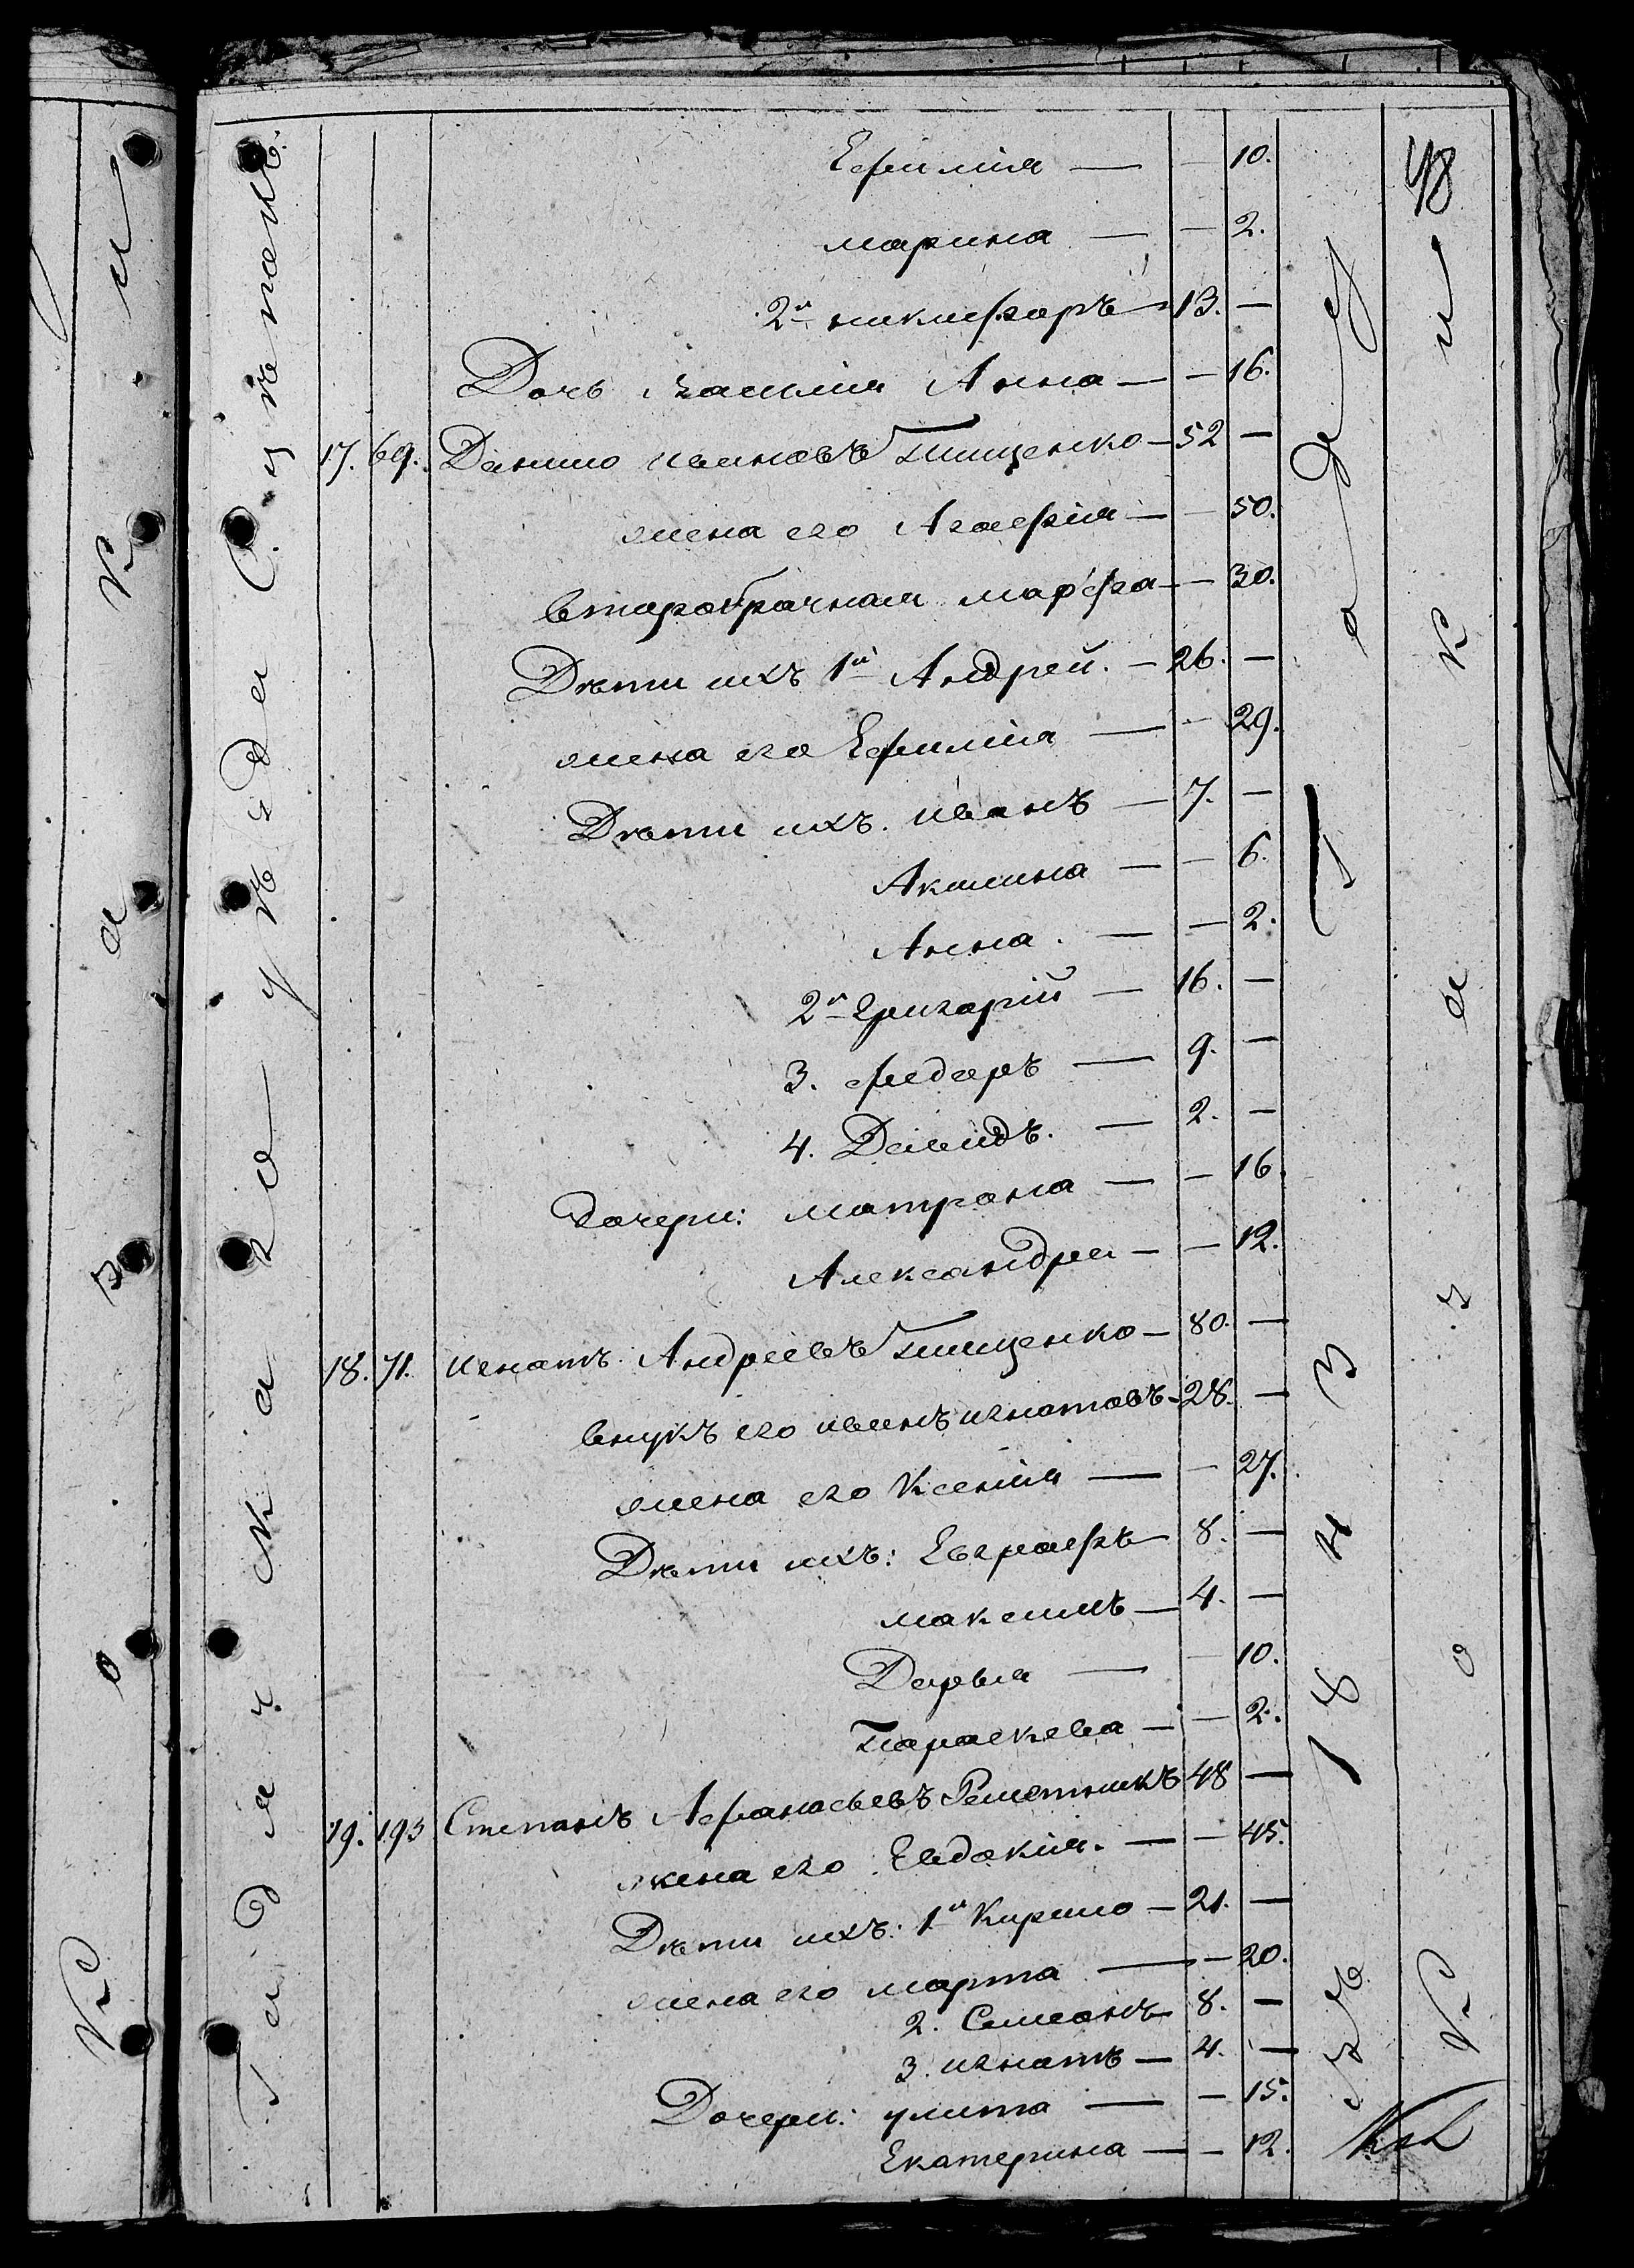 48
Ефимія — — 10.
марина — — 2.
2й никифоръ — 13. —
Дочь василия Анна — — 16.
17. 69. Данило ивановъ Тищенко — 52 —
жена его Агафия — — 50.
второбрачная марфа — — 30.
Дѣти ихъ 1й Андрей. — 26. —
жена его Ефимия — — 29.
Дѣти ихъ. иванъ — 7. —
Акилина — — 6.
Анна. — — 2.
2й Григорій — 16. —
3. федоръ — 9. —
4. Давидъ. — 2. —
дочери: матрона — — 16.
Александра — — 12.
18. 71. игнатъ Андреевъ Тищенко — 80. —
внукъ его иванъ игнатовъ — 28. —
жена его Ксения — — 27.
Дѣти ихъ: Евграфъ 8. —
максимъ — 4. —
Дарья — — 10.
Параскева — — 2.
19. 193 Степанъ Афанасьевъ Решетникъ 48 —
жена его Евдокия. — — 45.
Дѣти ихъ: 1й Кирило — 21. —
жена его марта — — 20.
2. Симеонъ 8. —
3. игнатъ — 4. —
Дочери: улита — — 15.
Екатерина — — 12.
Гадячскаго уѣзда
1843 года
Козаки